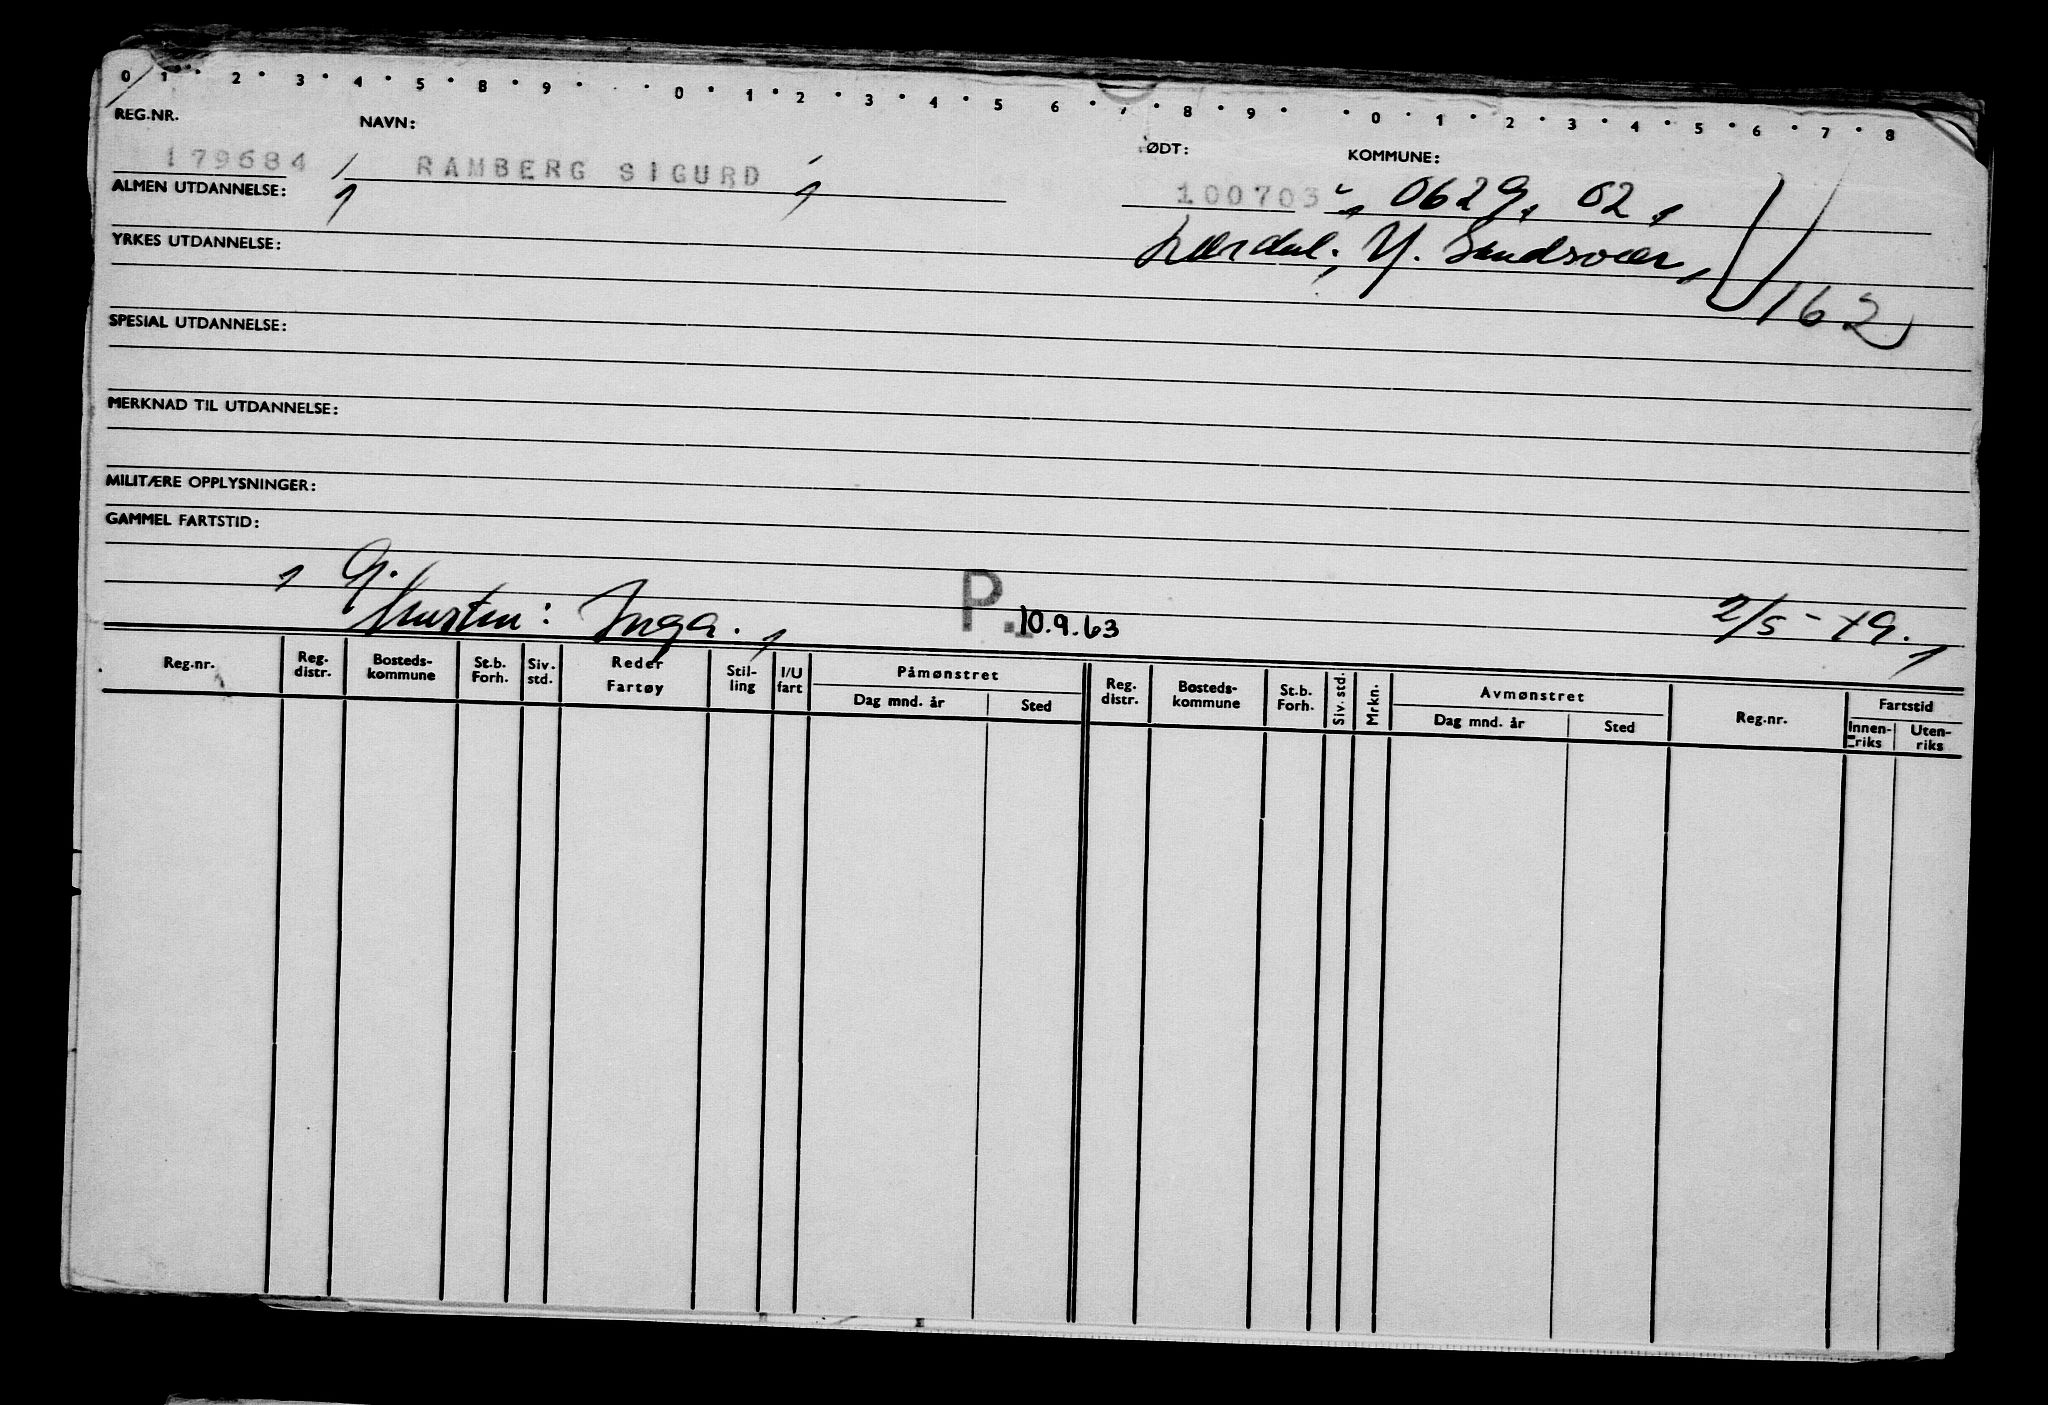 0 1 2 3 4 5 8 9 0 1 2 3 4 5 6 7 8 9 0 1 2 3 4 5 6 7 8
REG.NR. NAVN: ØDT: KOMMUNE:
179684 RAMBERG SIGURD 100703 0629, 02,
ALMEN UTDANNELSE:
YRKES UTDANNELSE: Y. Sandsvær,
162
SPESIAL UTDANNELSE:
MERKNAD TIL UTDANNELSE:
MILITÆRE OPPLYSNINGER:
GAMMEL FARTSTID:
G.
Hustru: Inga. P. 10.9.63 2/5-49.
Reg.nr. Reg. distr. Bosteds-kommune St.b. Forh. Siv. std. Reder Fartøy Stil-ling I/U fart Påmønstret Reg. distr. Bosteds-kommune St.b. Forh. Siv. std. Mrkn. Avmønstret Reg.nr. Fartstid
Dag mnd. år Sted Dag mnd. år Sted Innen-riks Uten-riks